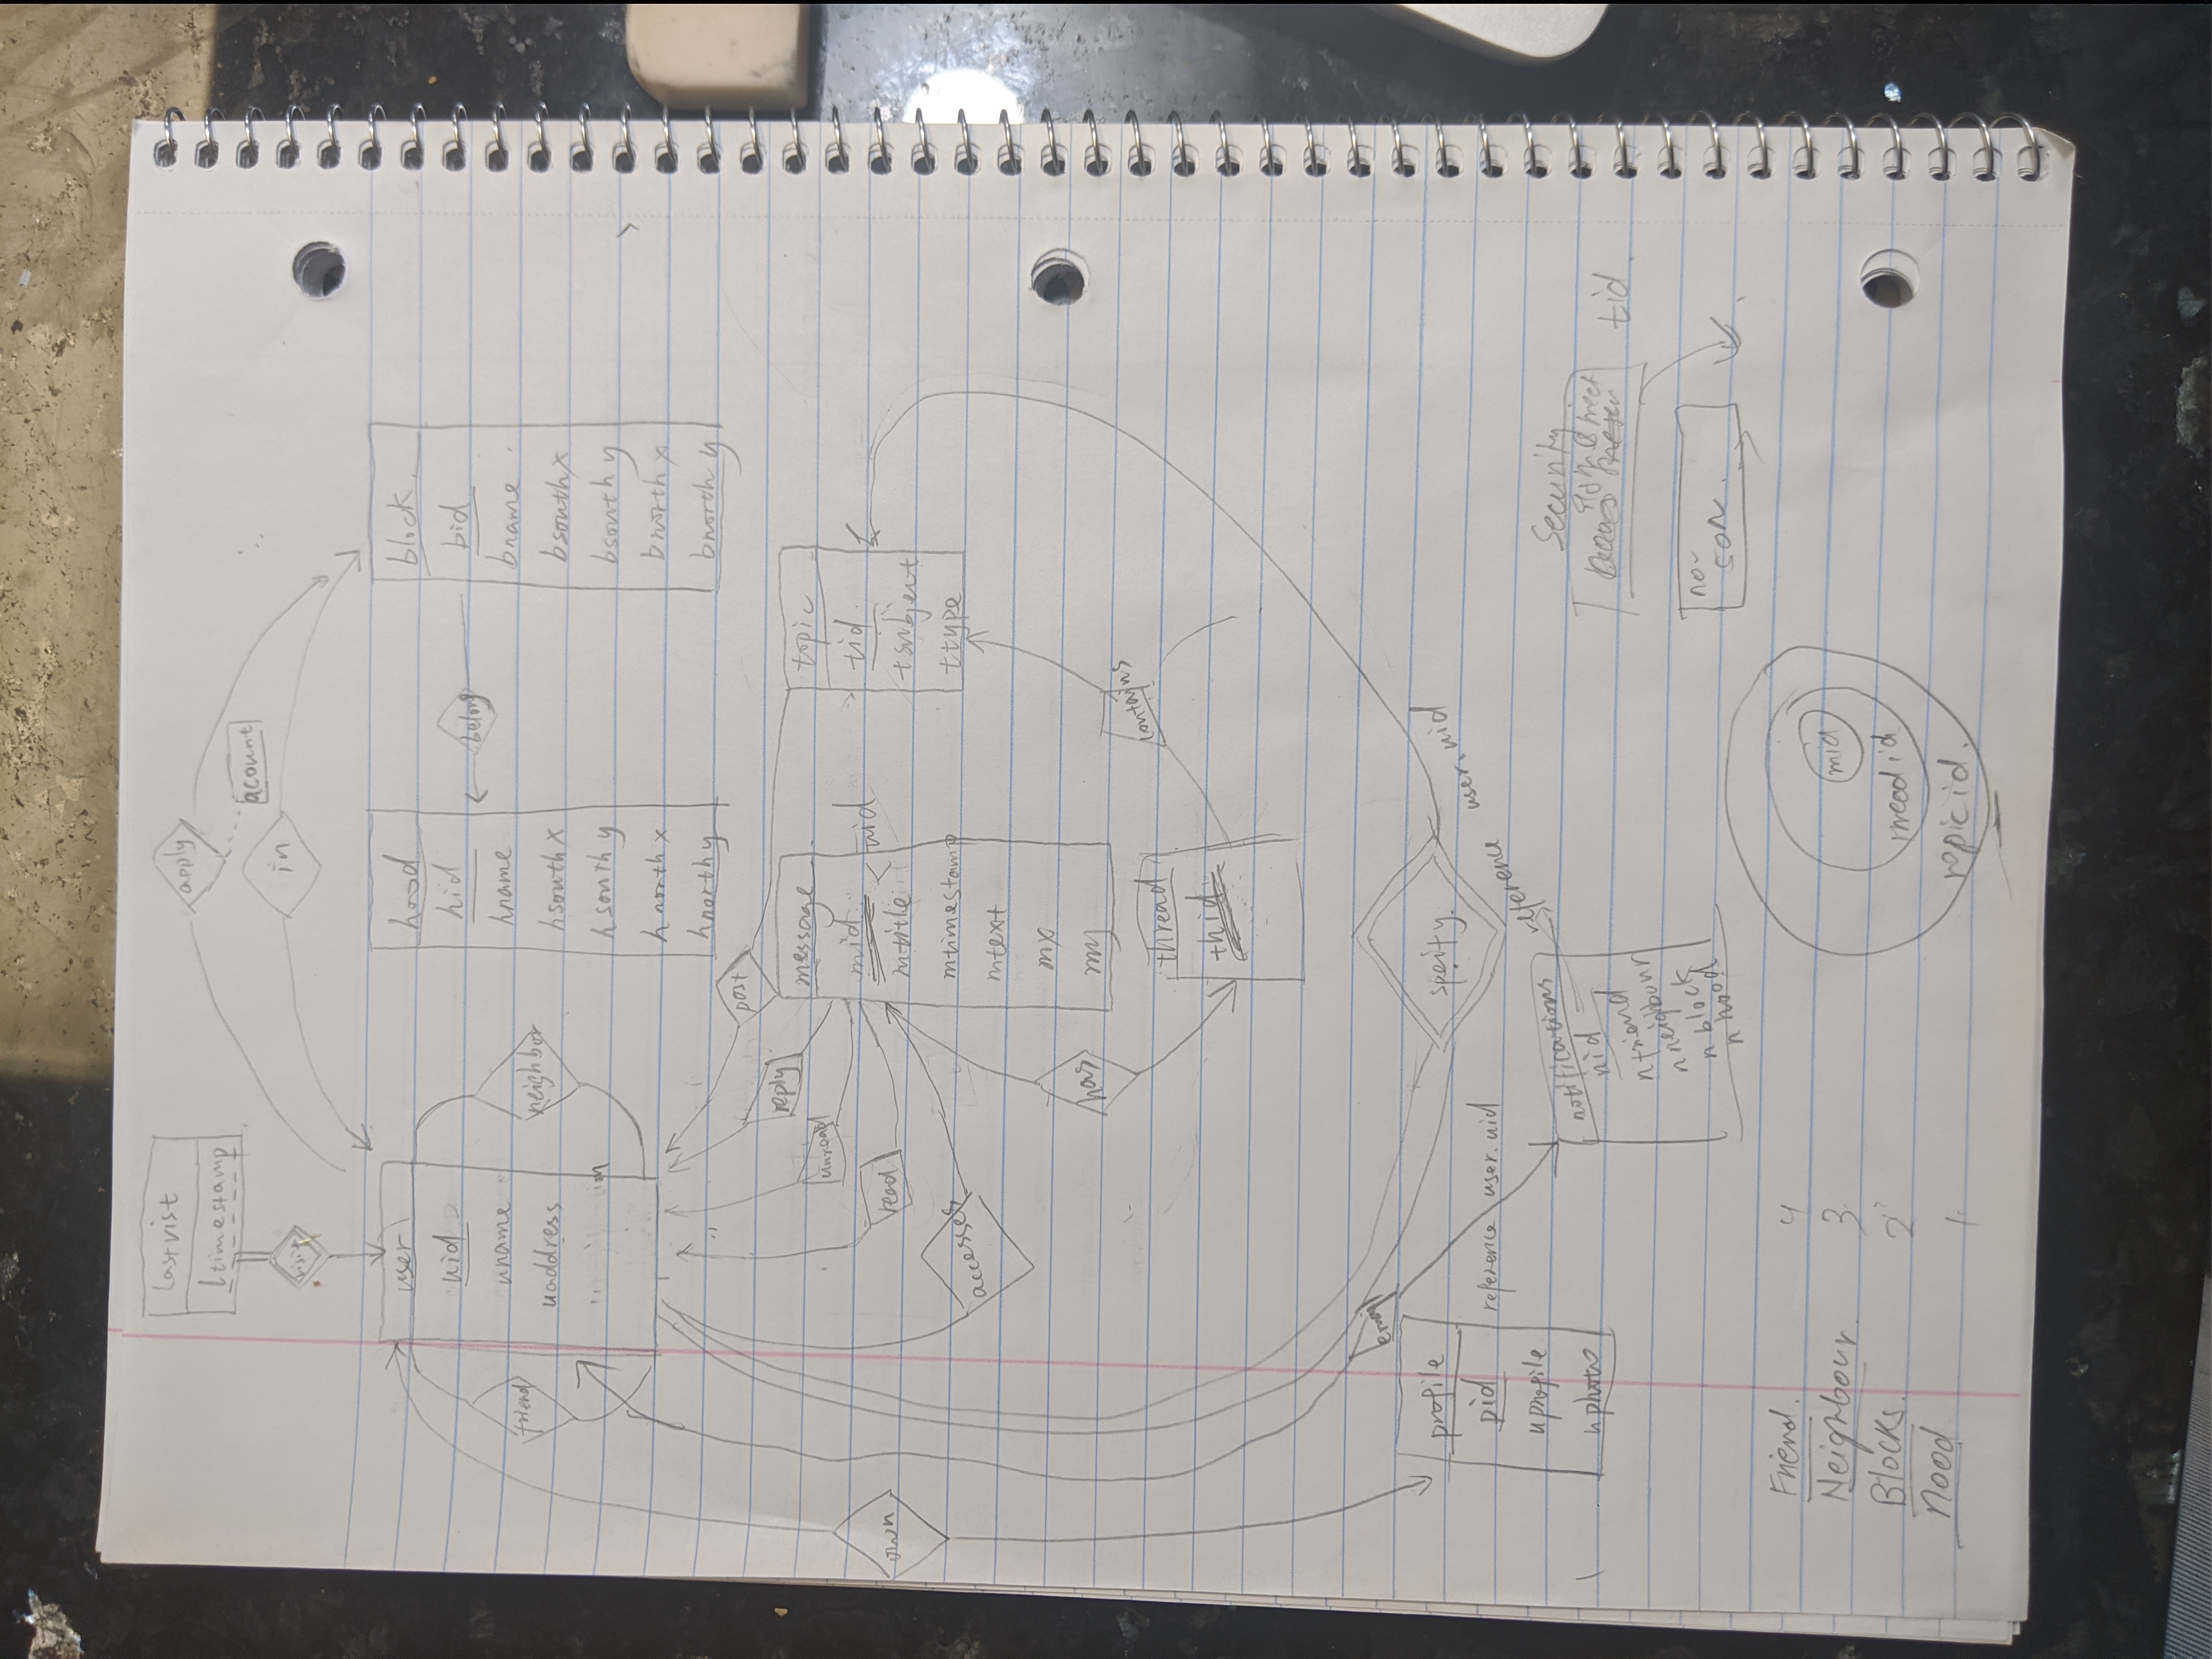 lastvist
ltimestamp
visit
apply
acount
in
user
uid
uname
uaddress
friend
neighbor
hood
hid
hname
hsouthx
hsouthy
hnorthx
hnorthy
belong
block
bid
bname
bsouthx
bsouthy
bnorthx
bnorthy
post
reply
unread
read
accesses
own
message
mid
uid
mtitle
mtimestamp
mtext
mx
my
topic
tid
tsubject
ttype
has
contains
thread
thid
email
speify
profile
pid
reference user.uid
uprofile
uphoto
reference user.uid
notifications
nid
nfriend
nneighbour
nblock
nhood
Security
tid
no-
son.
Friend. 4
Neighbour. 3
Blocks. 2
Hood 1
mid
thread id
topic id.